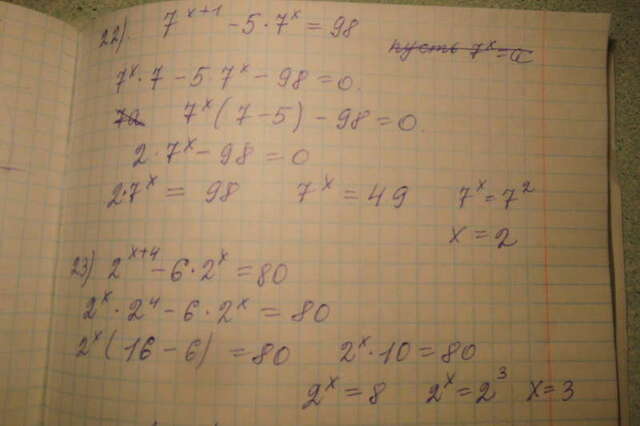 22). 7^{x+1} - 5 · 7^x = 98
пусть 7^x = a
7^x · 7 - 5 · 7^x - 98 = 0.
7a 7^x (7 - 5) - 98 = 0.
2 · 7^x - 98 = 0
2 · 7^x = 98 7^x = 49 7^x = 7^2
x = 2
23) 2^{x+4} - 6 · 2^x = 80
2^x · 2^4 - 6 · 2^x = 80
2^x (16 - 6) = 80 2^x · 10 = 80
2^x = 8 2^x = 2^3 x = 3